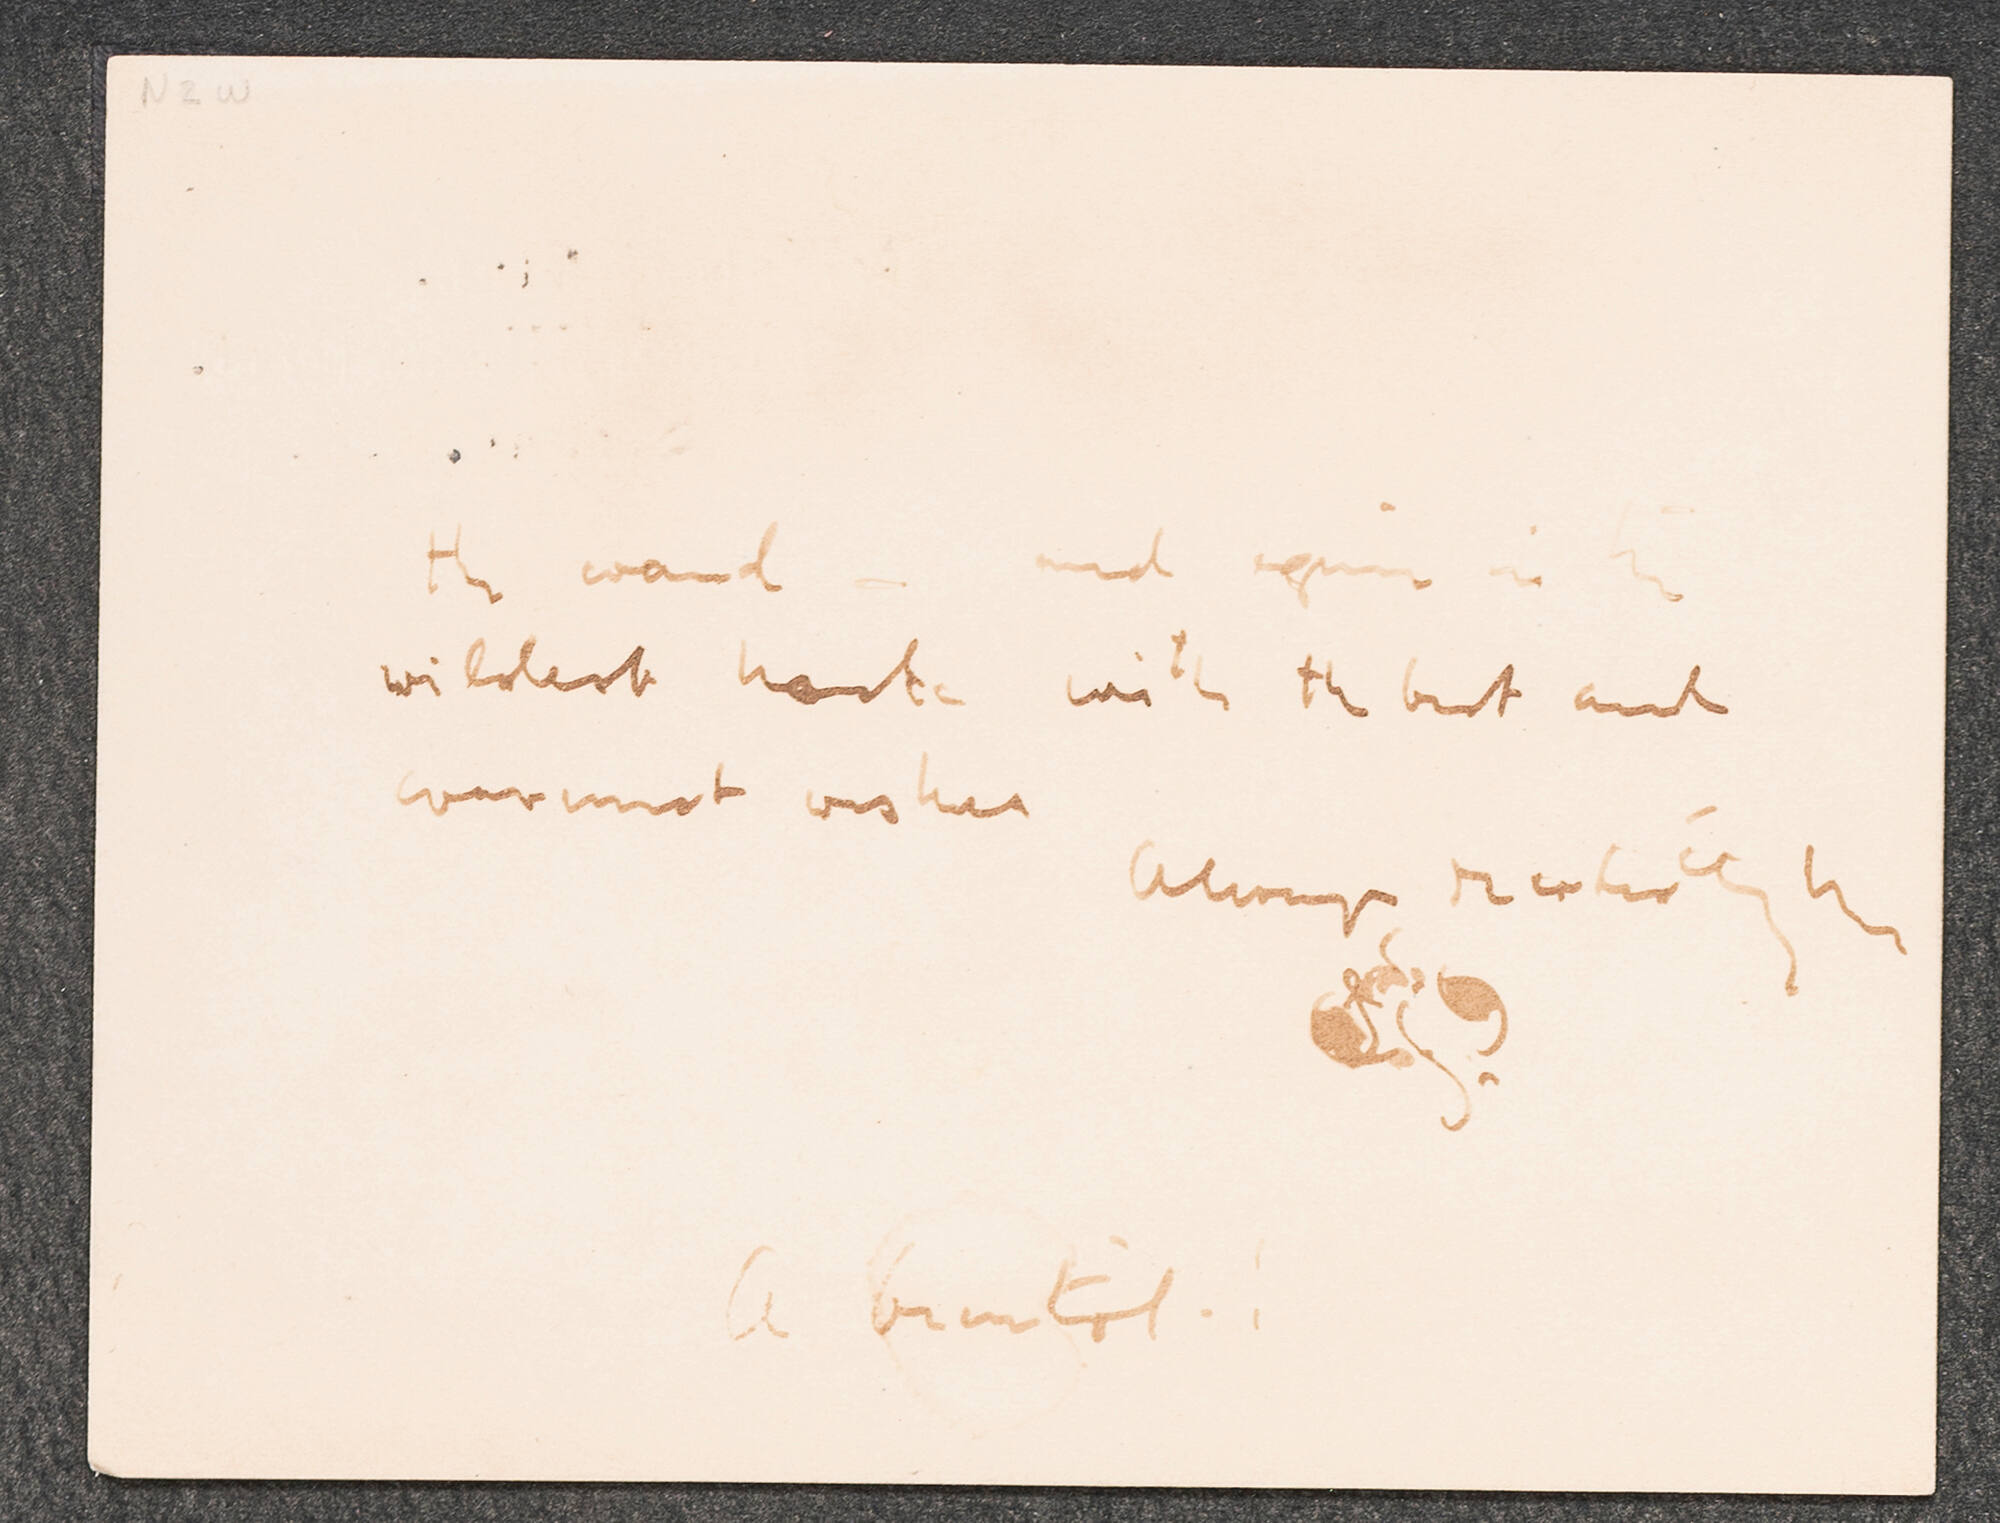 N Z W
the wand – and again in the
wildest haste with the best and
warmest wishes
Always
A bientôt. !